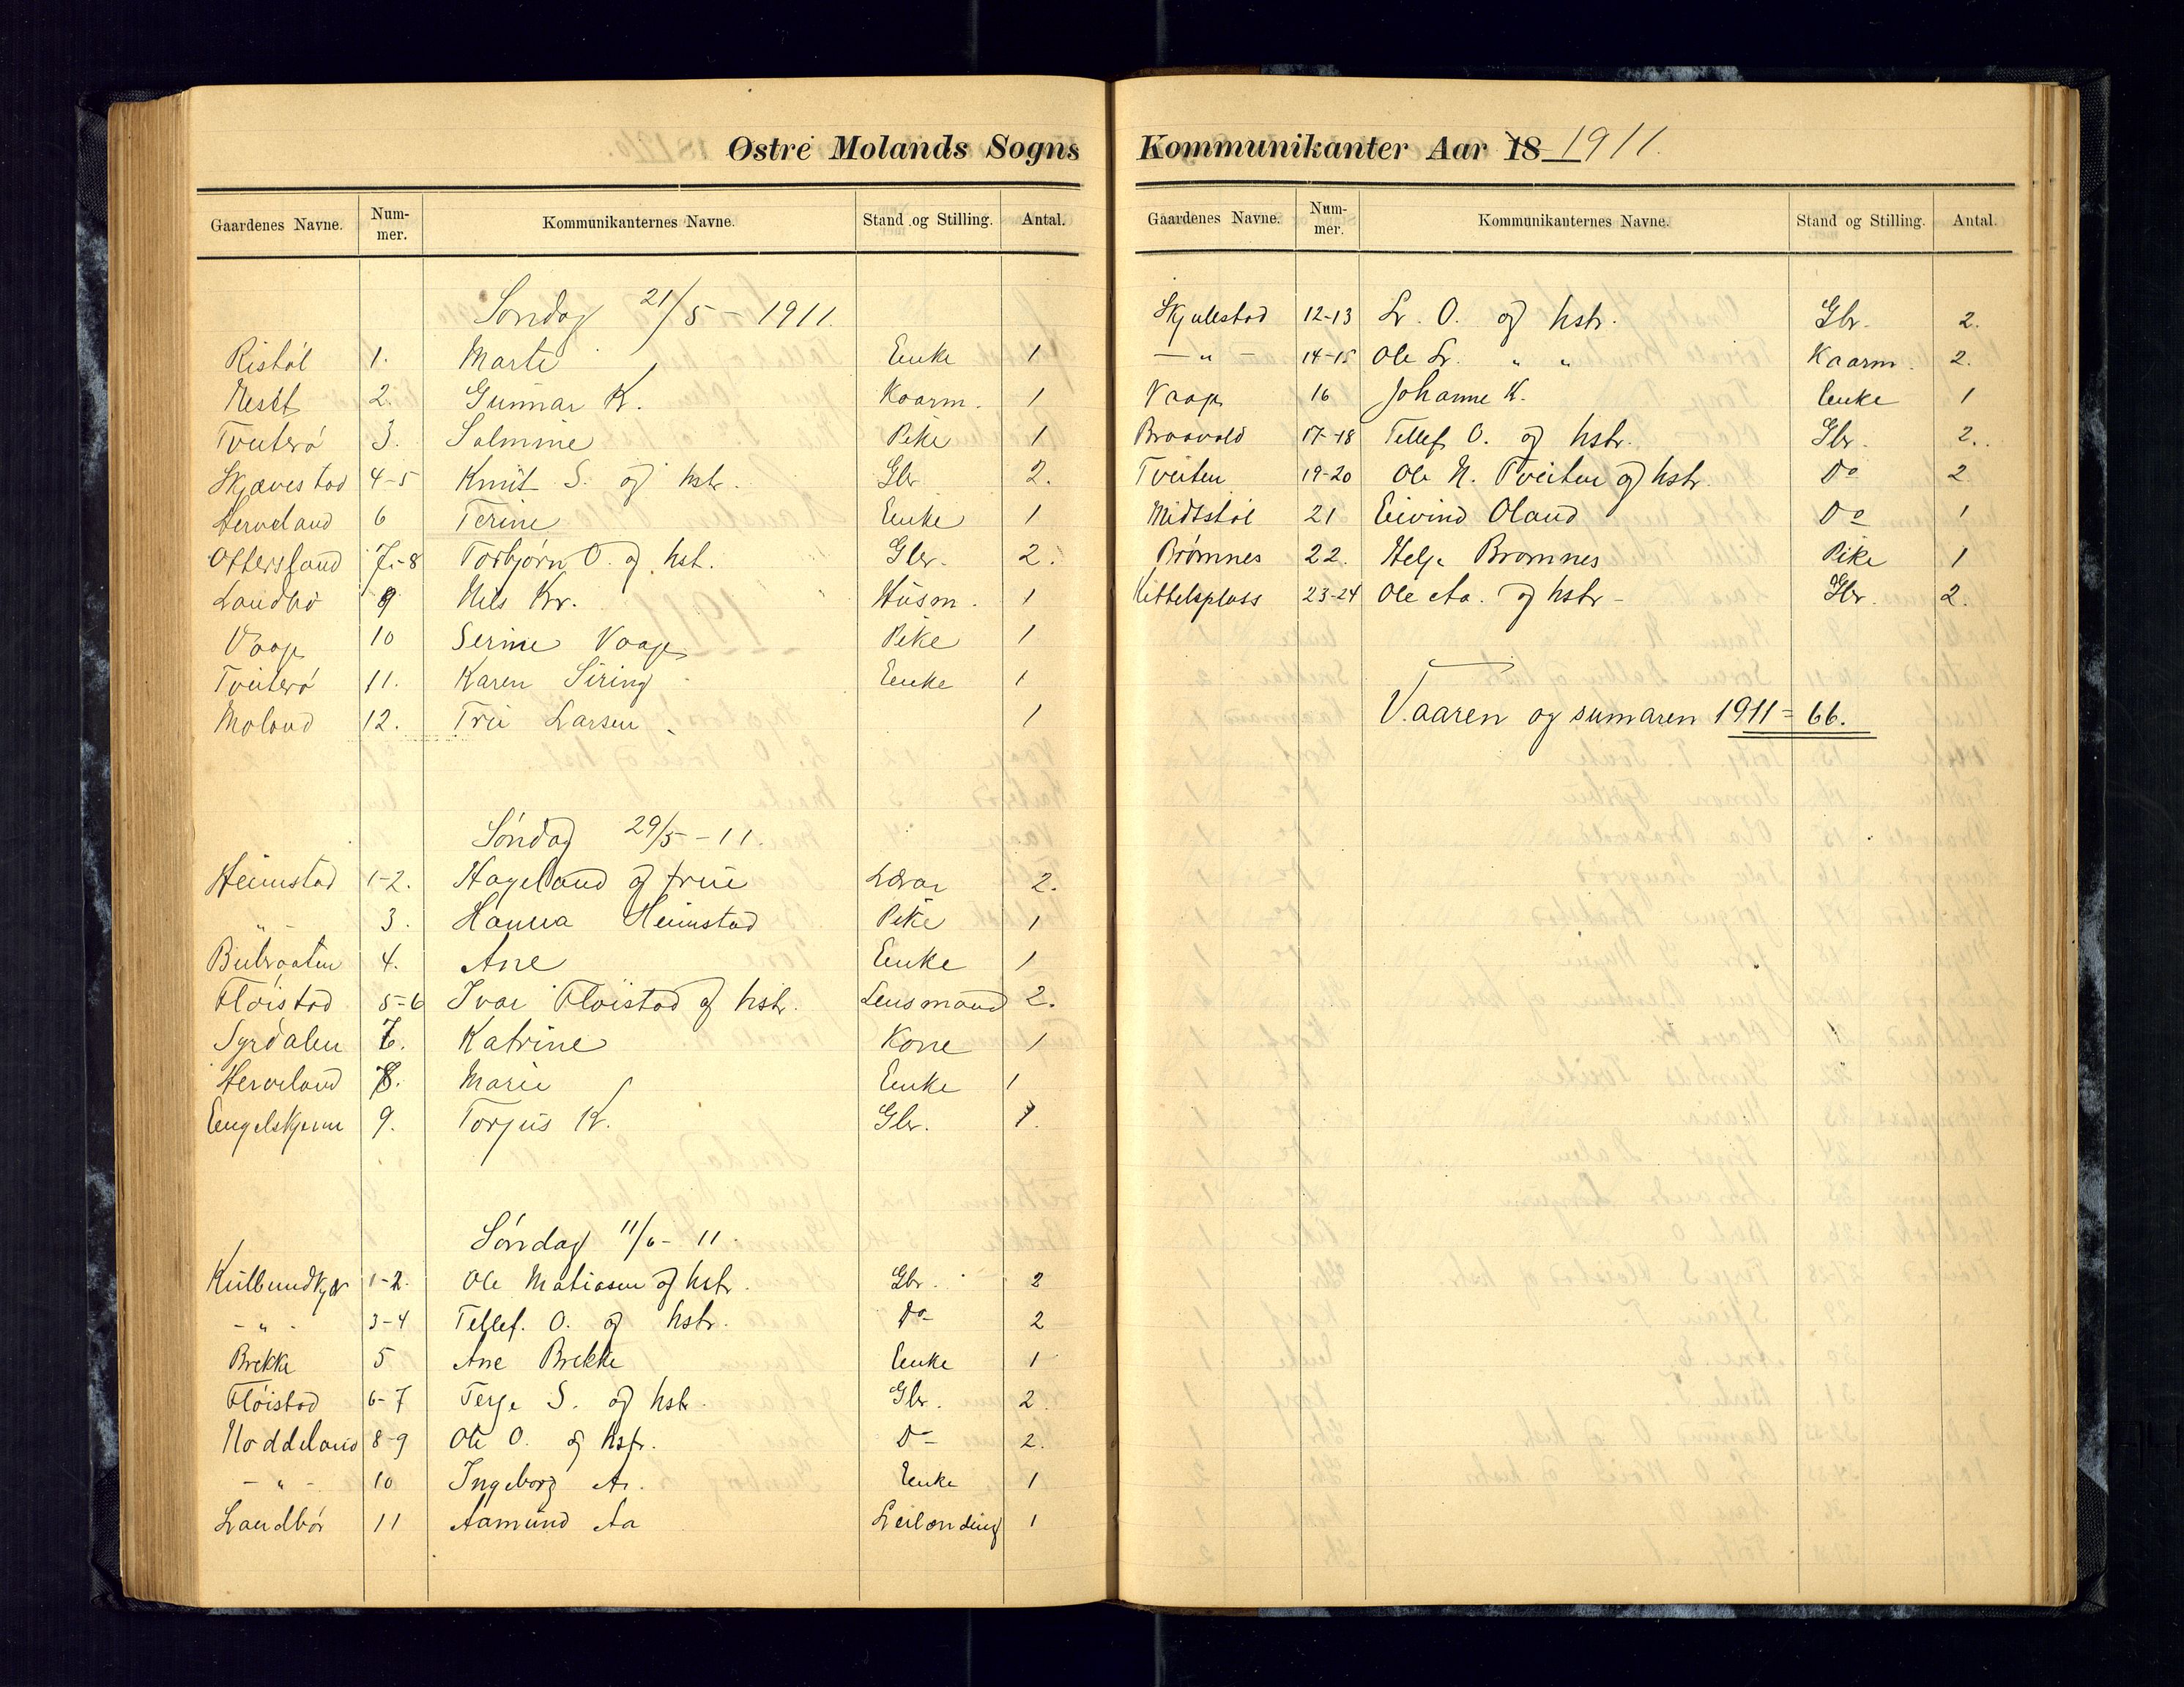 Østre Molands Sogns
Gaardenes Navne. Num-mer. Kommunikanternes Navne. Stand og Stilling. Antal.
Søndag 21/5 - 1911.
Ristøl 1. Marte Enke 1
Nesst 2. Gunnar K. Kaarm. 1
Tveiterø 3. Salmine Pike 1
Skjævestad 4-5 Knut S. og hstr. Gbr. 2.
Herveland 6 Terine Enke 1
Ottersland 7-8 Torbjørn O. og hst. Gbr. 2.
Landbø 9 Nils Kr. Husm. 1
Vaage 10 Serine Vaage Pike 1
Tveiterø 11. Karen Siring Enke 1
Moland 12. Trie Larsen 1
Søndag 29/5 - 11.
Heimstad 1-2. Hageland og frue Lærar 2.
" - 3. Hanna Heimstad Pike 1
Bubraaten 4. Ane Enke 1
Fløistad 5-6 Ivar Fløistad og hstr. Lensmand 2.
Syrdalen 7. Katrine Kone 1
Herveland 8. Marie Enke 1
Engelskjønn 9. Torjus K. Gbr. 1.
Søndag 11/6 - 11.
1-2. Ole Matiasen og hstr. Gbr. 2
- " - 3-4 Tellef. O. og hstr. Do 2
Brekke 5 Ane Brekke Enke 1
Fløistad 6-7 Terje S. og hstr. Gbr. 2.
Noddeland 8-9 Ole O. og hstr. Do 2.
- " - 10 Ingeborg A. Enke 1
Landbør 11 Aamund Aa Leilending 1
Kommunikanter Aar 18 1911.
Gaardenes Navne. Num-mer. Kommunikanternes Navne. Stand og Stilling. Antal.
Skjullestad 12-13 Lr. O. og hstr. Gbr. 2.
- " - 14-15 Ole Lr. " " Kaarm. 2.
Vaage 16 Johanne K. Enke 1
Braavold 17-18 Tellef O. og hstr. Gbr. 2.
Tveiten 19-20 Ole N. Tveiten og hstr. Do 2
Midtstøl 21 Eivind Oland Do 1
Brømnes 22. Helje Bromnes Pike 1
Kittelsplass 23-24 Ole Aa. og hstr - Gbr. 2.
Vaaren og sumaren 1911 = 66.